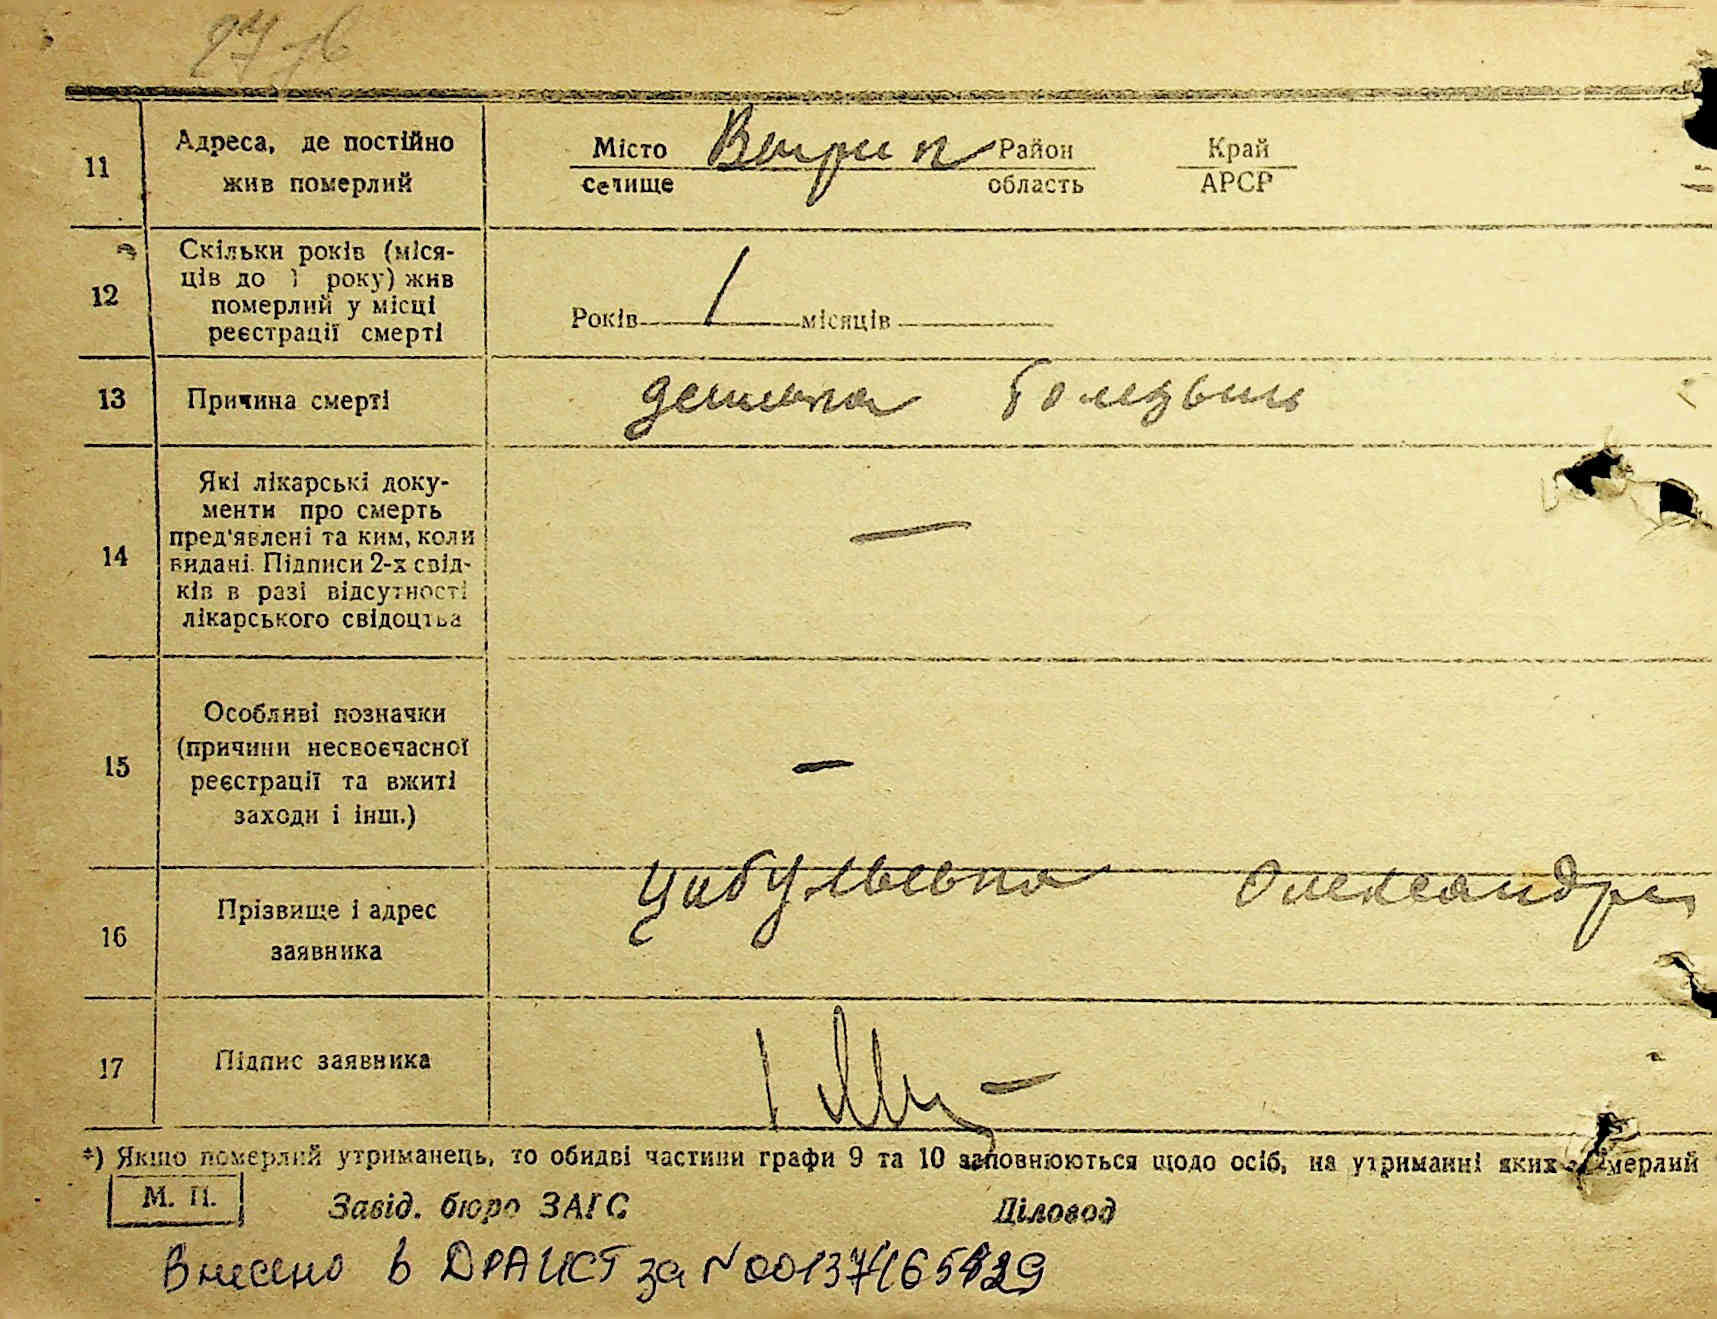 11 Адреса, де постійно
жив померлий
Місто Вирип Район Край
селище область АРСР
12 Скільки років (міся-
ців до 1 року) жив
померлий у місці
реєстрації смерті
Років 1 місяців
13 Причина смерті
14 Які лікарські доку-
менти про смерть
пред'явлені та ким, коли
видані. Підписи 2-х свід-
ків в разі відсутності
лікарського свідоцтва
—
15 Особливі позначки
(причини несвоєчасної
реєстрації та вжиті
заходи і інш.)
—
16 Прізвище і адрес
заявника
Цибульєвна Олександра
17 Підпис заявника
*) Якщо померлий утриманець, то обидві частини графи 9 та 10 заповнюються щодо осіб, на утриманні яких померлий
М. П. Завід. бюро ЗАГС Діловод
Внесено в ДРАЦСГ за N